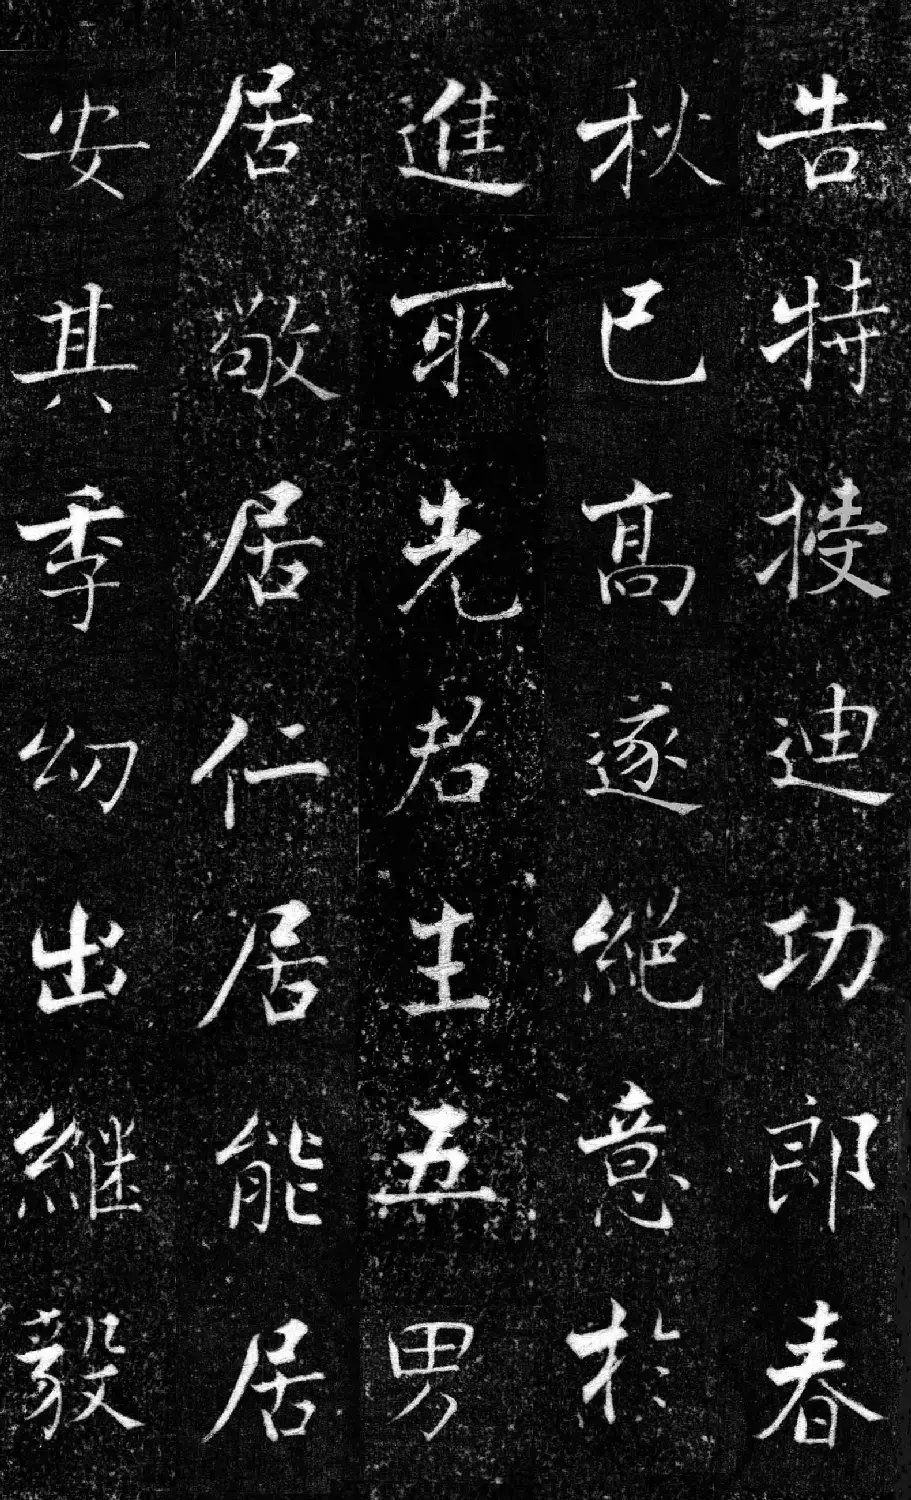 告特授迪功郎春
秋已高遂絕意於
進取先君生五男
居敬居仁居能居
安其季幼出繼毅